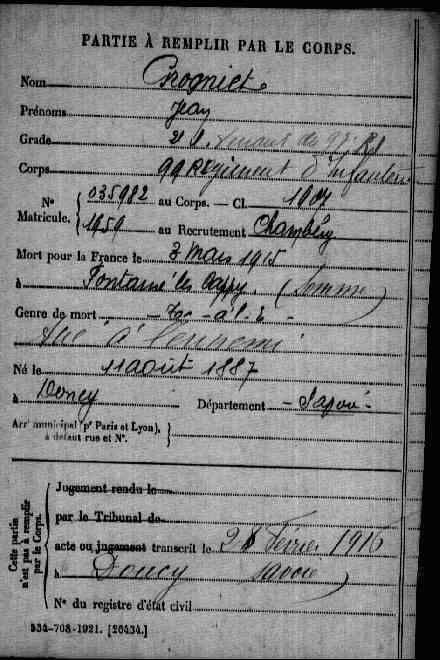 PARTIE À REMPLIR PAR LE CORPS.
Nom Crogniet
Prénoms Jean
Grade 2 S. venant du 97e RI
Corps 99 Régiment d'Infanterie
N° Matricule. { 035982 au Corps. — Cl. 1907
1959 au Recrutement Chambéry
Mort pour la France le 3 mars 1915
à Fontaine les Cappy. (Somme)
Genre de mort — Tué - à l'E -
Tué à l'ennemi
Né le 11 août 1887
à Doucy Département - Savoie -
Arrt municipal (pr Paris et Lyon), à défaut rue et N°. }
Cette partie n'est pas à remplir par le Corps.
Jugement rendu le
par le Tribunal de
acte ou jugement transcrit le 28 Février 1916
à Doucy Savoie)
N° du registre d'état civil
534-708-1921. [26434.]